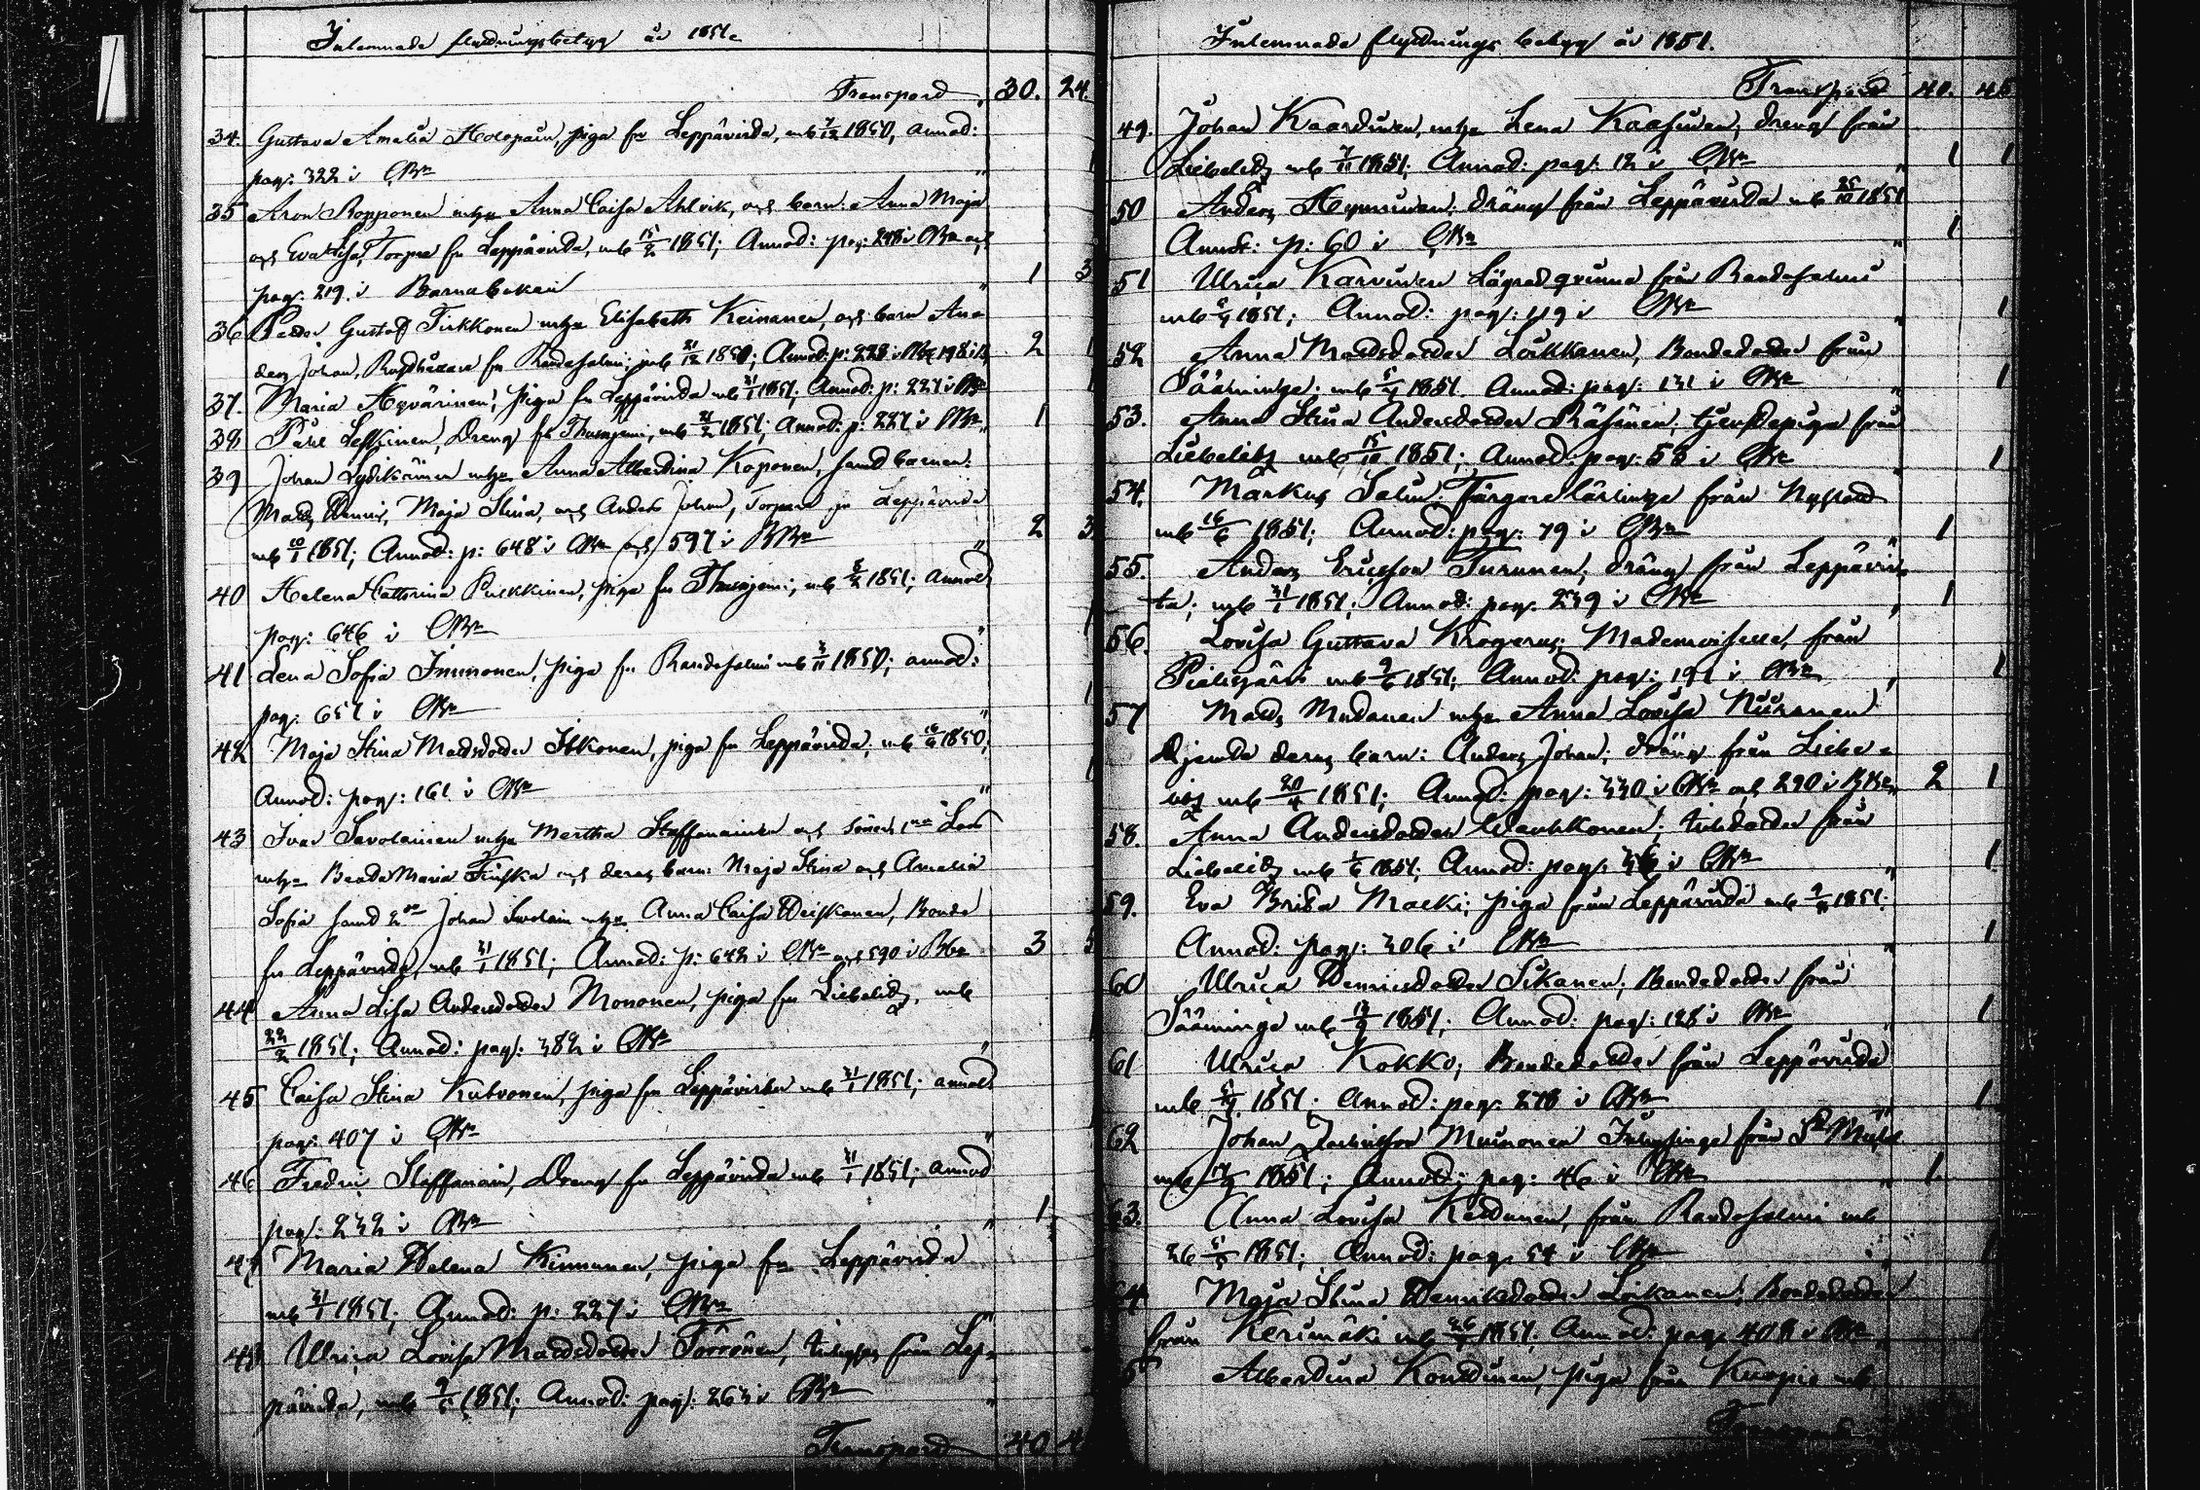 Inlemnade flyttningsbetyg år 1851.
Transport 30. 24.
34. Gustava Amalia Holopain, piga fr Leppävirta, mb 7/12 1850, annot:
pag: 322 i KBn
35 Aron Ropponen mhu Anna Caisa Ahlvik, och barn: Anna Maja
och Eva Lisa, Torpare fr Leppävirta, mb 15/2 1851; Annot: pag: 248 i KBn och
pag: 219. i Barnaboken 1 3
36 Petter Gustaf Tirkkonen mhu Elisabeth Keinanen, och barn An-
ders Johan, fr Randasalmi, mb 21/12 1850; Annot: p: 228 i 198 i 2
37. Maria Hyvärinen, piga fr Leppävirta mb 21/1 1851, Annot: p: 227 i KBn
38 Påhl Leskinen, Dreng fr Thusniemi, mb 21/2 1851; Annot: p: 227 i KBn 1
39 Johan Lydikäinen mhu Anna Albertina Koponen, samt barnen:
Matts Henric, Maja Stina, och Anders Johan, Torpare fr Leppävirta
mb 10/1 1851; Annot: p: 648 i KBn och 597 i BBn 2 3
40 Helena Cathrina Pulkkinen, piga fr Thusniemi; mb 1851; annot
pag: 646 i KBn
41 Lena Sofia Immonen, piga fr Randasalmi mb 1850; annot:
pag: 651 i KBn
42 Maja Stina Mattsdotter Itkonen, piga fr Leppävirta, mb 1850,
Annot: pag: 161. i KBn
43 Ivar Savolainen mhu Martha Staffanainen och söner, 1na Lars
mhu Beata Maria Finska och deras barn: Maja Stina och Amalia
Sofia samt 2dra Johan Savolain mhu Anna Caisa Heiskanen, Bonde
fr Leppävirta, mb 21/1 1851; Annot: p: 642 i KBn och 590 i BBn 3 5
44 Anna Lisa Andersdotter Mononen, piga fr Liebelitz, mb
22/2 1851; Annot: pag: 382 i KBn
45 Caisa Stina Kutvonen, piga fr Leppävirta mb 21/1 1851; annot
pag: 407 i KBn
46 Fredric Staffanain, Dreng fr Leppävirta mb 21/1 1851; annot
pag: 232 i KBn 1
47 Maria Helena Kinnunen, piga fr Leppävirta
mb 21/1 1851; Annot: p: 227 i KBn
48 Ulrica Lovisa Mattsdotter Törrönen, från Lep-
pävirta, mb 1851; Annot: pag: 263 i KBn
Transport 40
Inlemnade flyttnings betyg år 1851.
Transport 40. 45
49. Johan Kaardinen, mhu Lena Kaasinen, dreng från
Liebelitz mb 1851; Annot: pag: 12 i KBn 1 1
50 Anders Hyvönen, dräng från Leppävirta mb 25/10 1851
Annot: p: 60 i KBn 1
51 Ulrica Karvinen Lägrad qvinna från Randasalmi
mb 1851; Annot: pag: 119 i KBn 1
52 Anna Mattsdotter Loikkanen, Bondedotter från
Sääminge; mb 1851. Annot: pag: 131 i KBn 1
53. Anna Stina Andersdotter Räsänen, tjenstepiga från
Liebelitz mb 15/10 1851; Annot: pag: 58 i KBn 1
54. Markus Salin Färgare lärlinge från Nystad
mb 16/6 1851; Annot: pag: 79 i KBn 1
55. Anders Ericsson Turunen, dräng från Leppävir-
ta; mb 21/1 1851; Annot: pag: 239 i KBn 1
56. Lovisa Gustava Krogerus, Mademoiselle, från
Pielisjärvi mb 1851; Annot: pag: 191 i KBn 1
57 Matts Mutanen mhu Anna Lovisa Nuutinen
tjemte deras barn: Anders Johan; dräng från Liebe-
litz mb 20/4 1851; Annot: pag: 330 i KBn och 290 i BBn 2 1
58. Anna Andersdotter från
Liebelitz mb 1851; Annot: pag: i KBn 1
59. Eva Brita Malki; piga från Leppävirta mb 1851;
Annot: pag: 306 i KBn 1
60 Ulrica Henricsdotter Sikanen; Bondedotter från
Sääminge mb 1851; Annot: pag: 128 i KBn 1
61 Ulrica Kokko, Bondedotter från Leppävirta
mb 1851; Annot: pag: 278 i KBn 1
62 Johan Muinonen Inhysinge från St Michel
mb 1851; Annot: pag: 46 i KBn 1.
63. Anna Lovisa från Randasalmi mb
1851; Annot: pag. 54 i KBn
64 Maja Stina Henriksdotter Loikanen; Bondedotter
från Kerimäki mb 1851; Annot: pag. 408 i KBn
5 Albertina Konttinen, piga från Kuopio mb
Transport